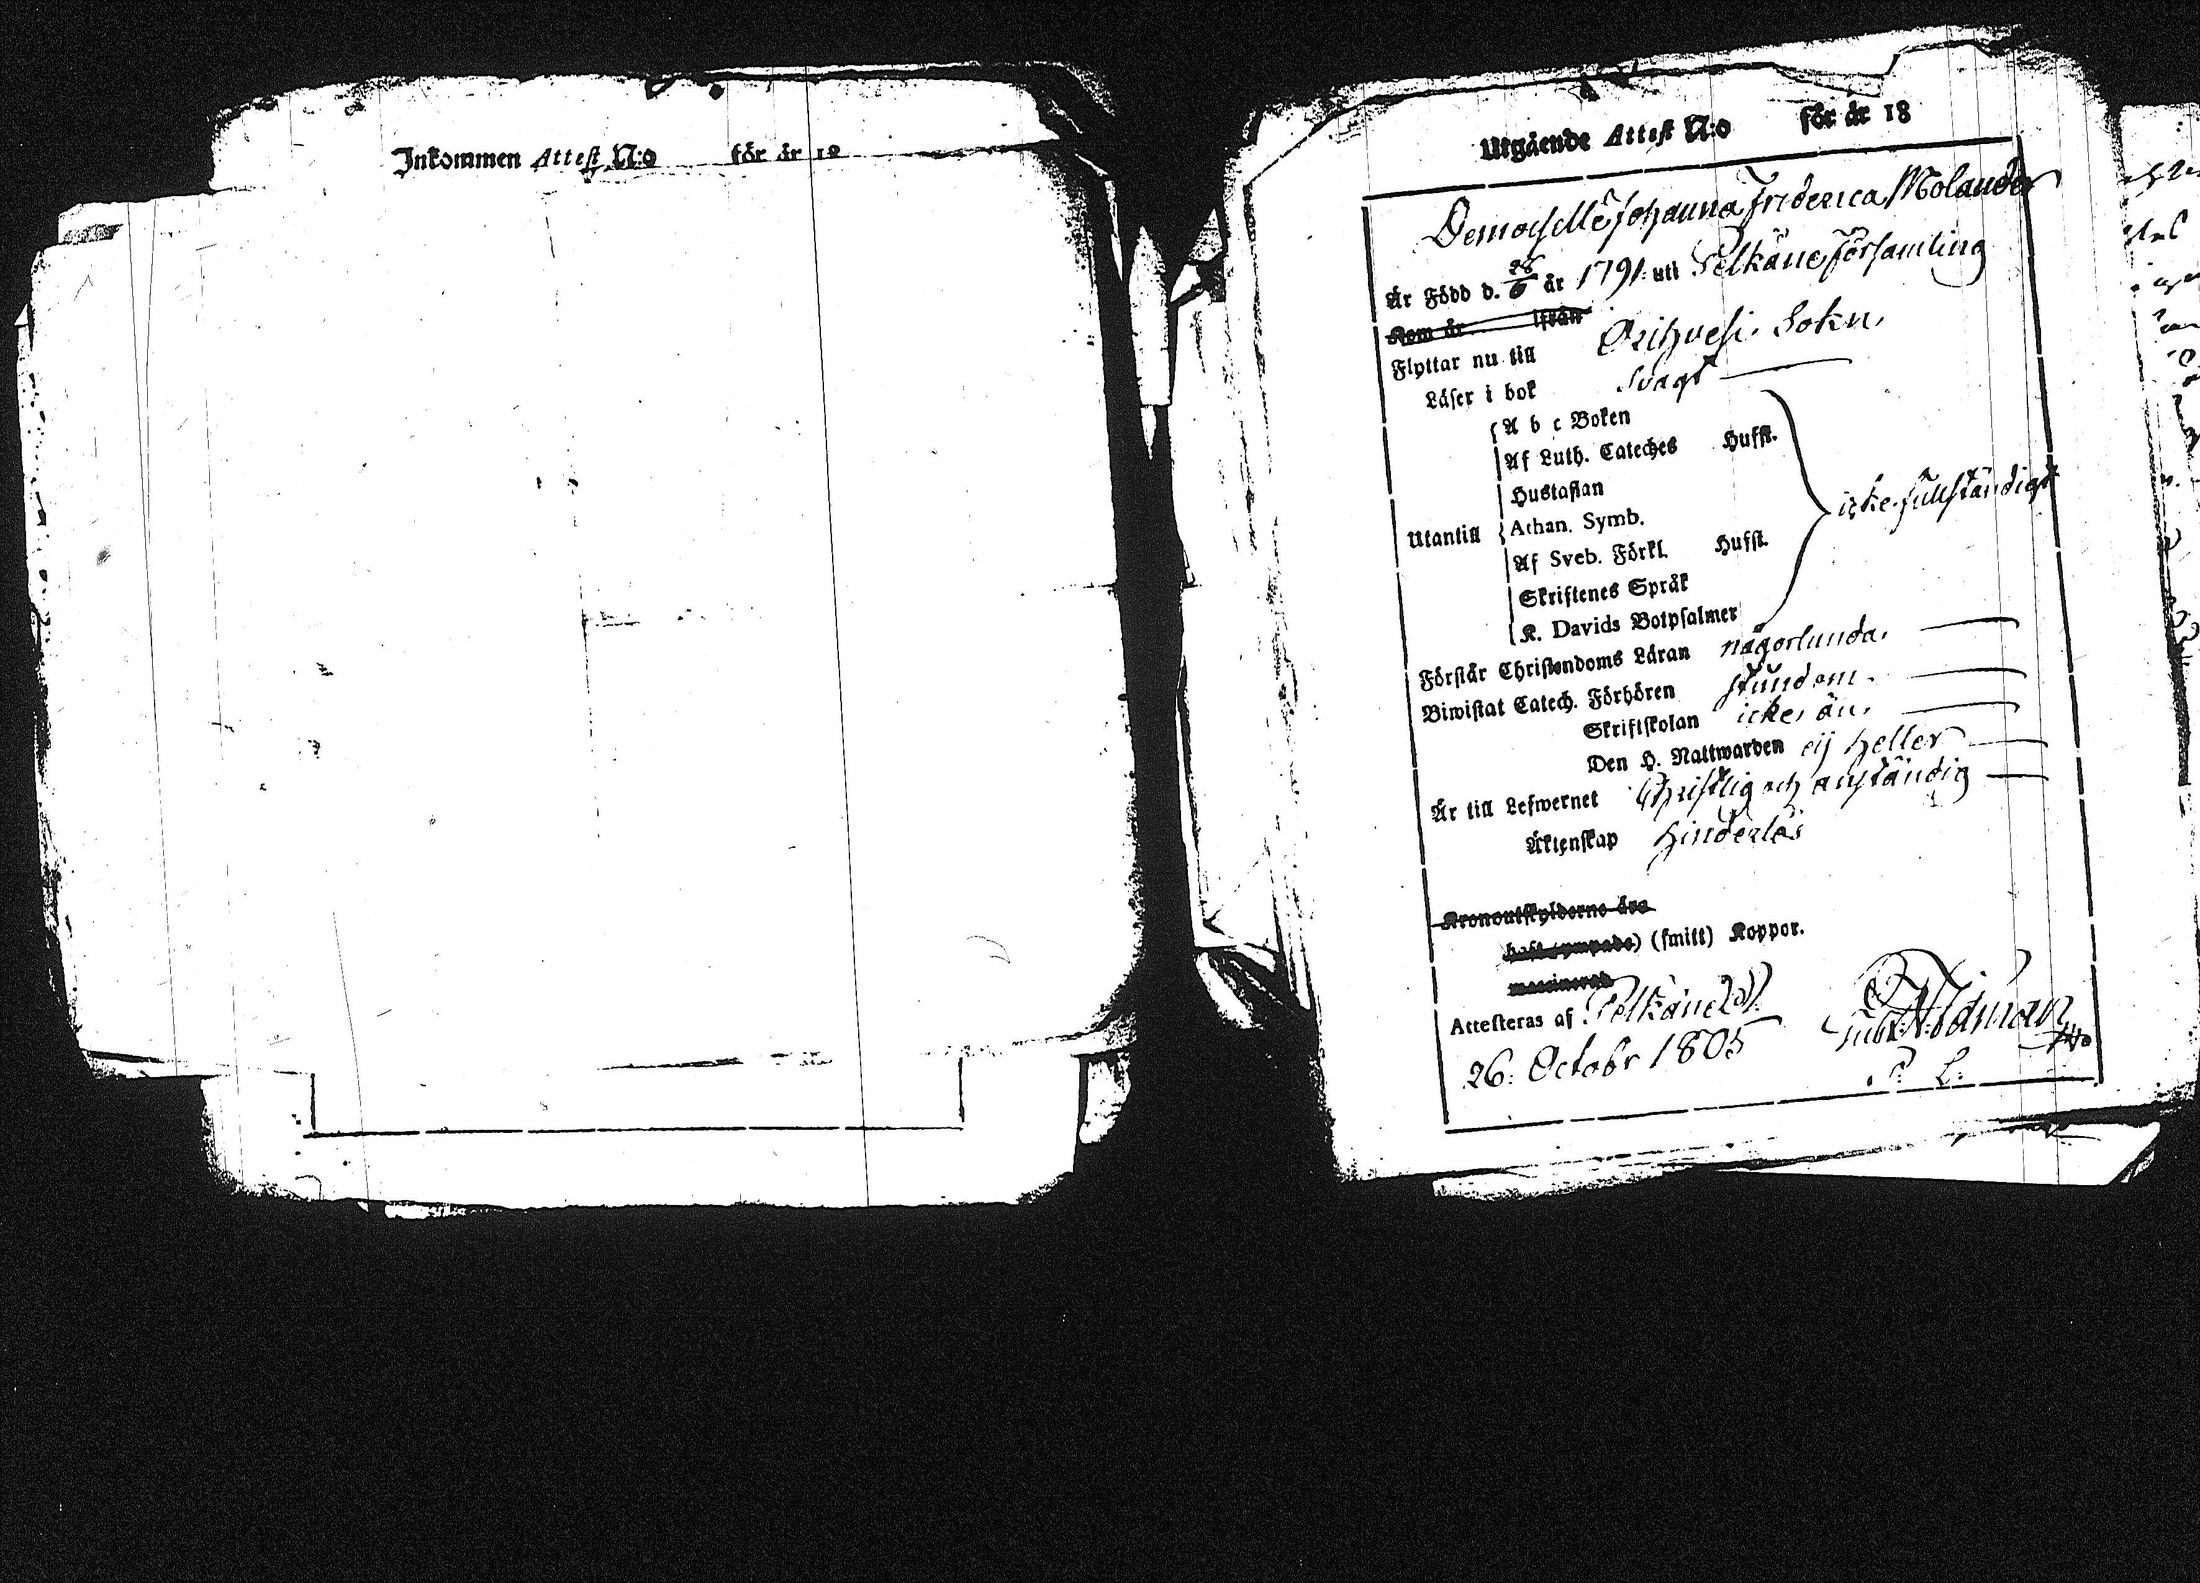 Inkommen Attest N:o för år 18
Utgående Attest N:o för år 18
Demoiselle Johanna Friderica Molander
Är Född d. 26/6 år 1791 uti Pelkäne församling
Kom år ifrån
Flyttar nu till Orihvesi Sokn.
Läser i bok svagt
A b c Boken
Af Luth. Cateches Hufst.
Hustaflan
icke fullständigt
Utantill Athan. Symb.
Af Sveb. Förkl. Hufst.
Skriftenes Språk
K. Davids Botpsalmer
Förstår Christendoms Läran någorlunda.
Biwistat Catech. Förhören stundom.
Skriftskolan icke än.
Den H. Nattwarden eij heller
Är till Lefwernet Christlig och anständig
Äktenskap hinderlös
Kronoutskylderne äro
haft (ympade) (smitt) Koppor.
Attesteras af Pelkäne d.
26. Octobr 1805
P. L.